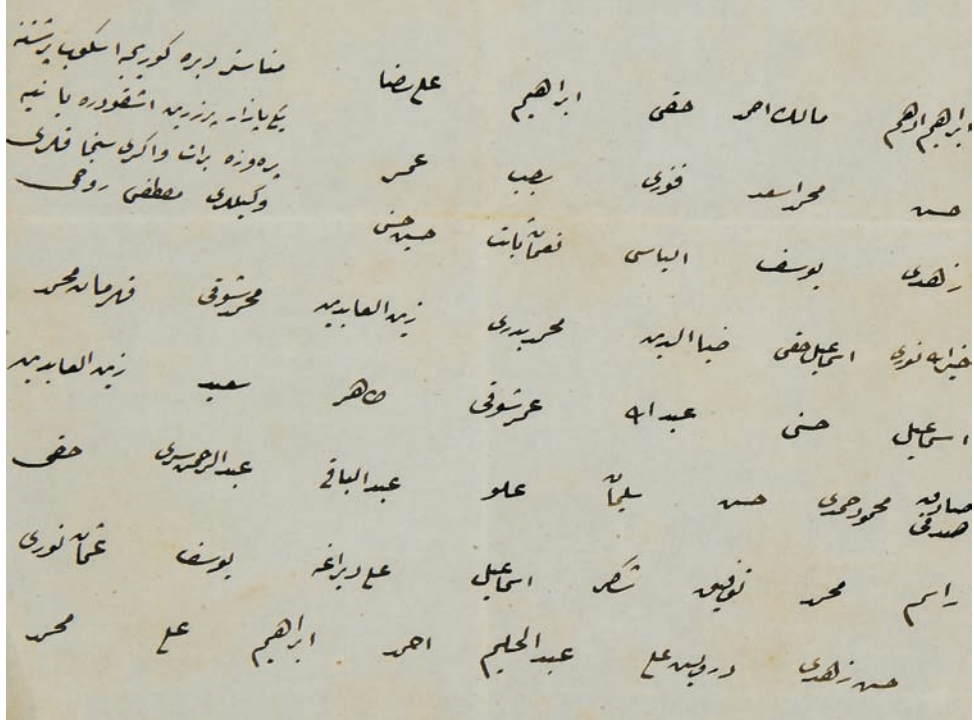 مناستر دبره كوريجه اسكوب پرشتنه
يكی بازار پرزرین اشقودره یانیه
پره وزه برات واكری سنجاقلری
وكیللری مصطفی روحی
ابراهیم ادهم مالك احمد حقی ابراهیم علی رضا
حسن محمد اسعد فوزی رجب عمر
زهدی یوسف الیاس نعمان ثابت حسین حسنی
خیرالله نوری اسماعیل حقی ضیاالدین محمد بدری زین العابدین محمد شوقی قهرمان محمد
اسماعیل حسنی عبدالله عمر شوقی طاهر سعید زین العابدین
صادق صدقی محمود حمدی حسن سلیمان علو عبدالباقی عبدالرحمن سری حقی
راسم محمد توفیق شاكر اسماعیل علی یوسف عثمان نوری
حسن زهدی درویش علی عبدالحلیم احمد ابراهیم علی محمد